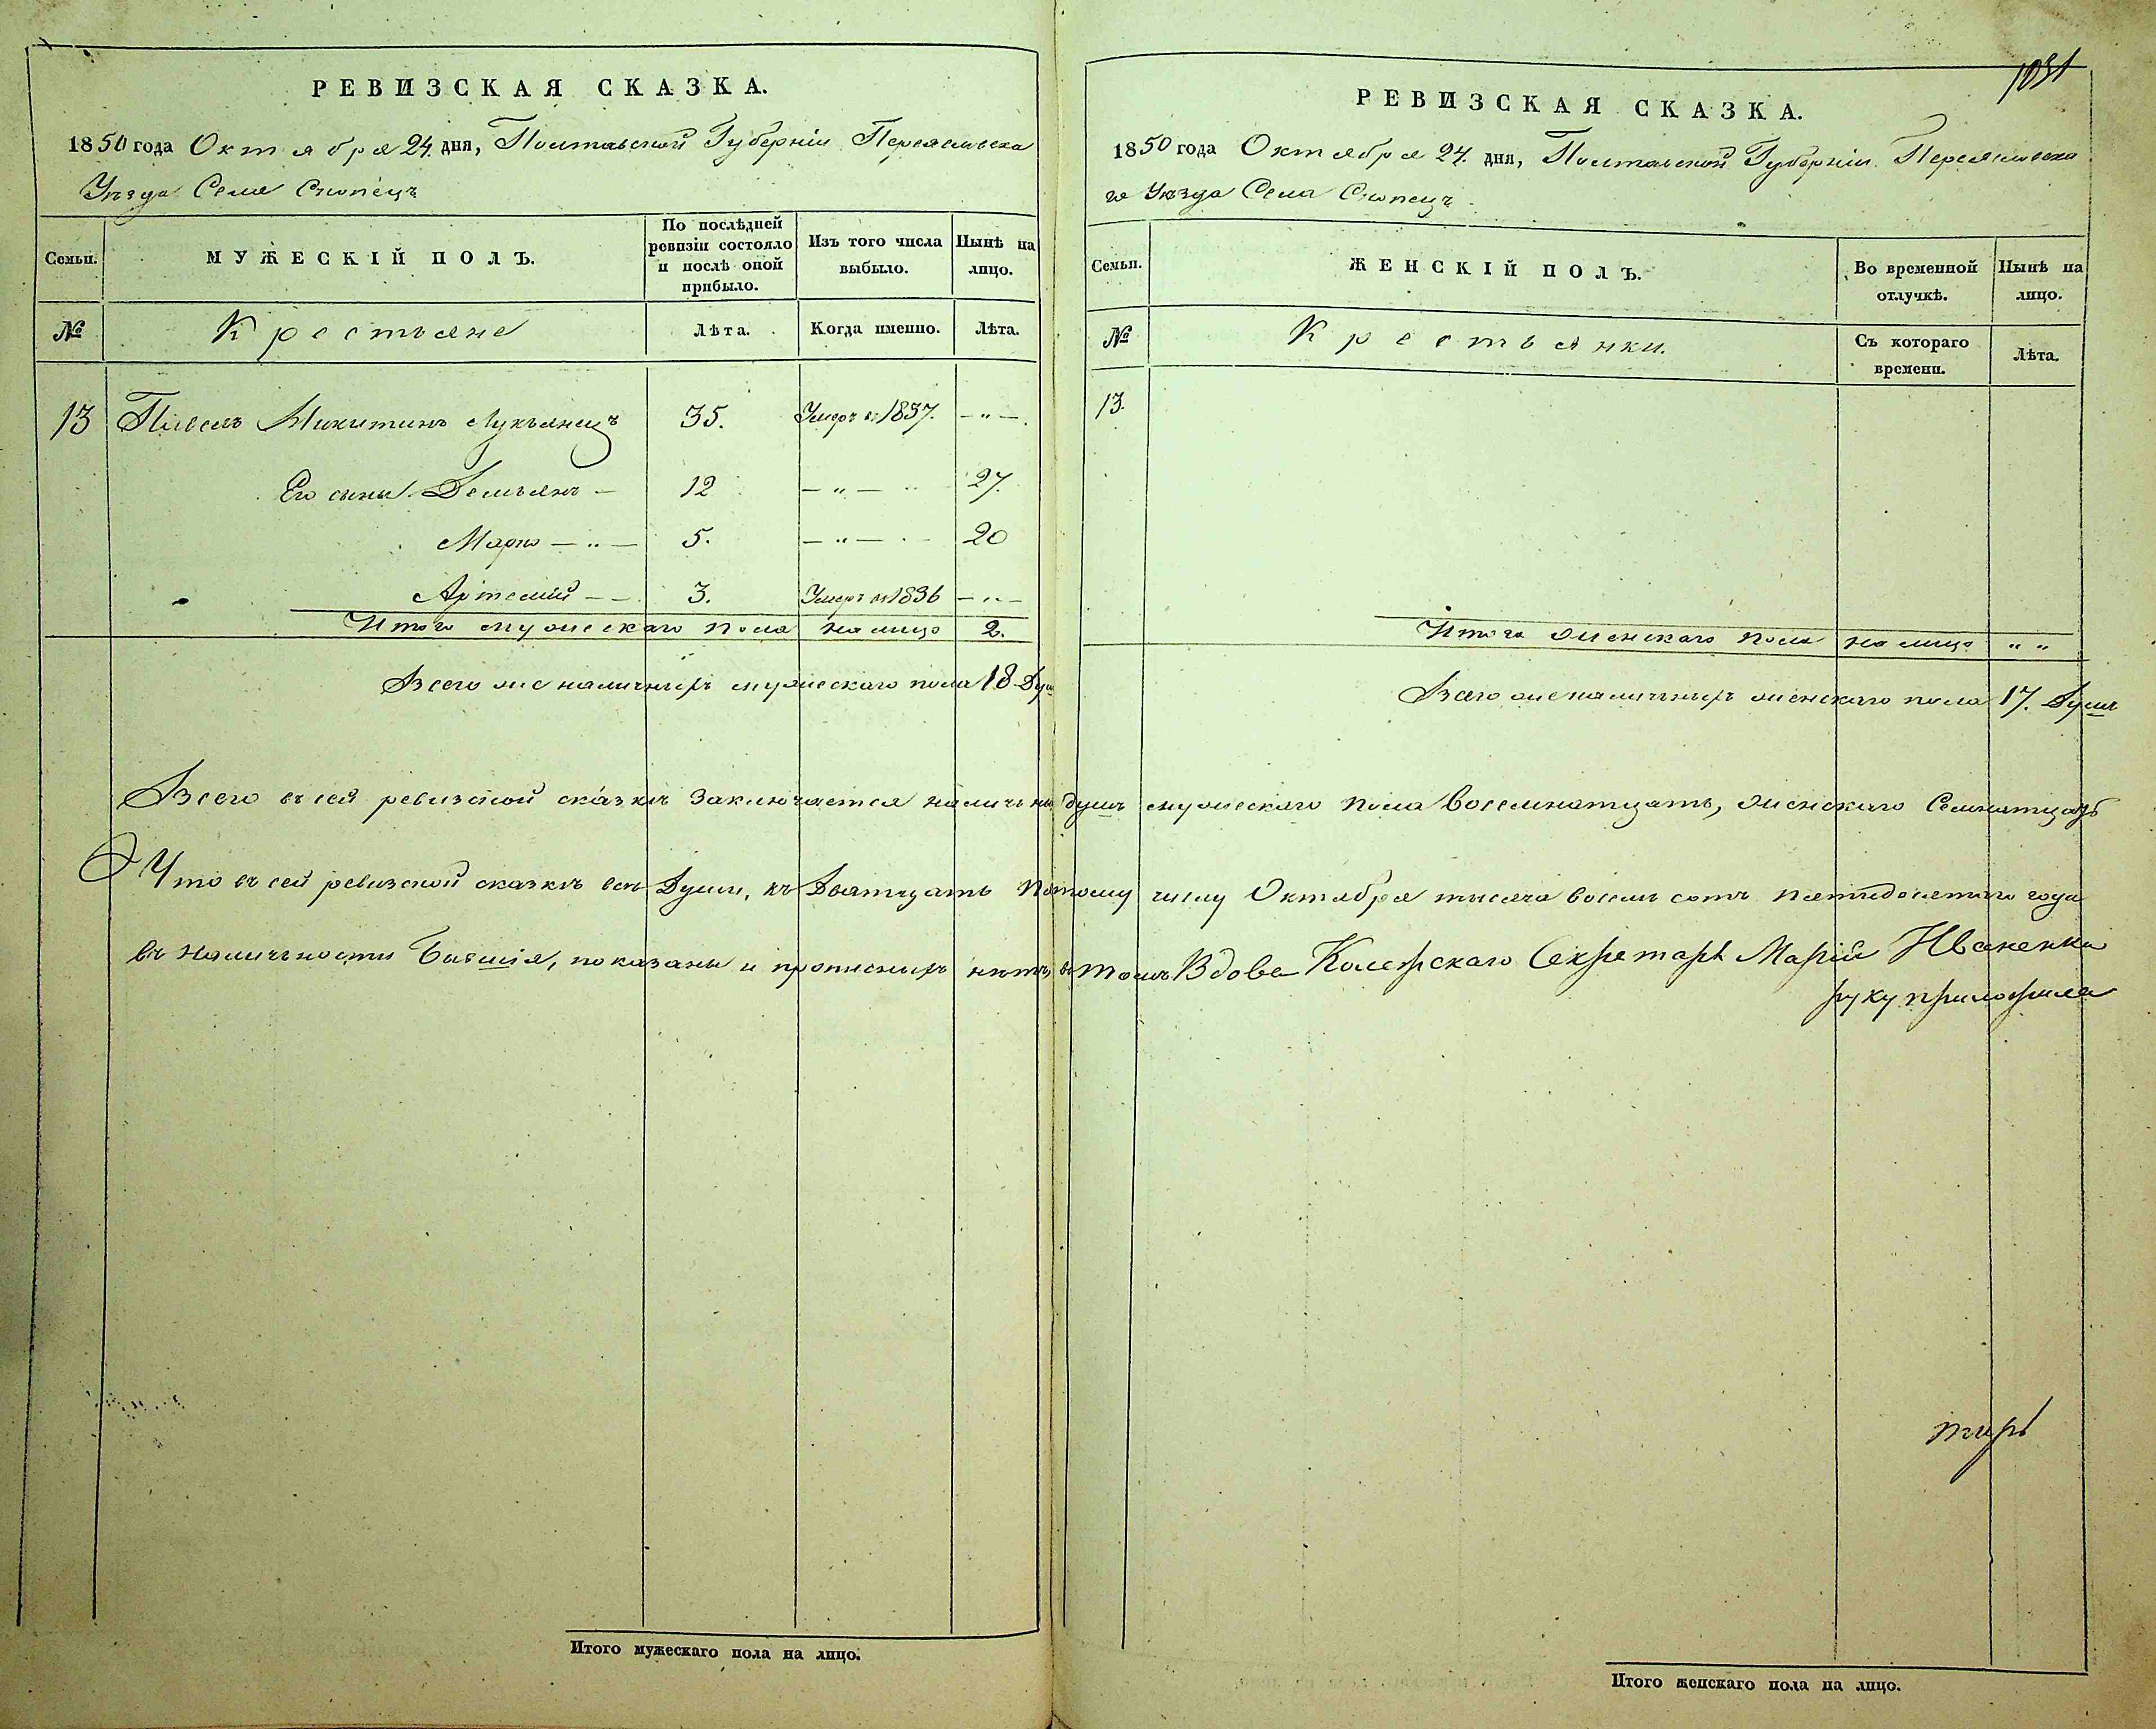 РЕВИЗСКАЯ СКАЗКА.
1850 года Октября 24. дня, Полтавской Губерніи Переяславска
Уѣзда Села Скопецъ
Семьи.
МУЖЕСКІЙ ПОЛЪ.
По послѣдней ревизіи состояло и послѣ оной прибыло.
Изъ того числа выбыло.
Нынѣ на лицо.
№
Крестьяне
Лѣта.
Когда именно.
Лѣта.
13 Павелъ Никитинъ Лукьянецъ 35. Умеръ въ 1837. — " —
Его сыны. Демьянъ — 12 — " — 27.
Марко — " — 5. — " — 20
Артемій — — 3. Умеръ въ 1836 — " —
Итого мужескаго пола на лицо 2.
Всего же наличныхъ мужескаго пола 18 Душ
РЕВИЗСКАЯ СКАЗКА.
1031
1850 года Октября 24. дня, Полтавской Губерніи Переяславска
го Уѣзда Села Скопецъ.
Семьи.
ЖЕНСКІЙ ПОЛЪ.
Во временной отлучкѣ.
Нынѣ на лицо.
№
Крестьянки.
Съ котораго времени.
Лѣта.
13.
Итого женскаго пола на лицо " "
Всего же наличныхъ женскаго пола 17. Душъ
Всего въ сей ревизской сказкѣ заключается налично душъ мужескаго пола восемнатцать, женскаго Семнатцать
Что въ сей ревизской сказкѣ всѣ Души, къ Дватцать Пятому числу Октября тысяча восемь сотъ пятидесятого года
въ наличности Бывшія, показаны и прописныхъ нѣтъ, въ томъ Вдова Колежскаго Секретаря Марія Иваненкова
руку приложила
Итого мужескаго пола на лицо.
Итого женскаго пола на лицо.